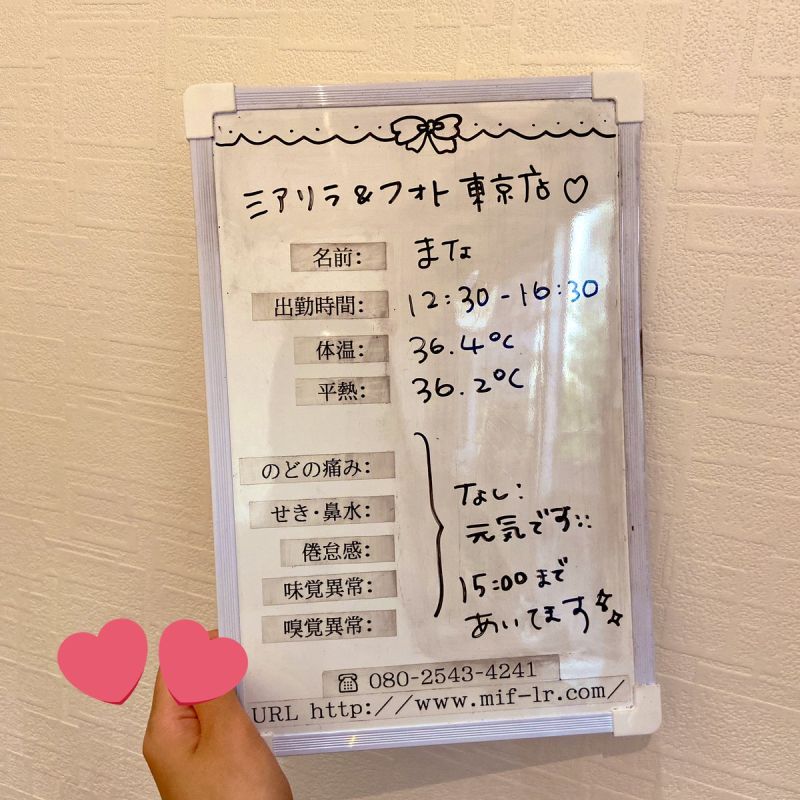 ミアリラ&フォト 東京店♡
名前: まな
出勤時間: 12:30-16:30
体温: 36.4℃
平熱: 36.2℃
のどの痛み:
せき・鼻水:
倦怠感:
味覚異常:
嗅覚異常:
なし:
元気です::
15:00まで
あいてます
☎ 080-2543-4241
URL http://www.mif-lr.com/